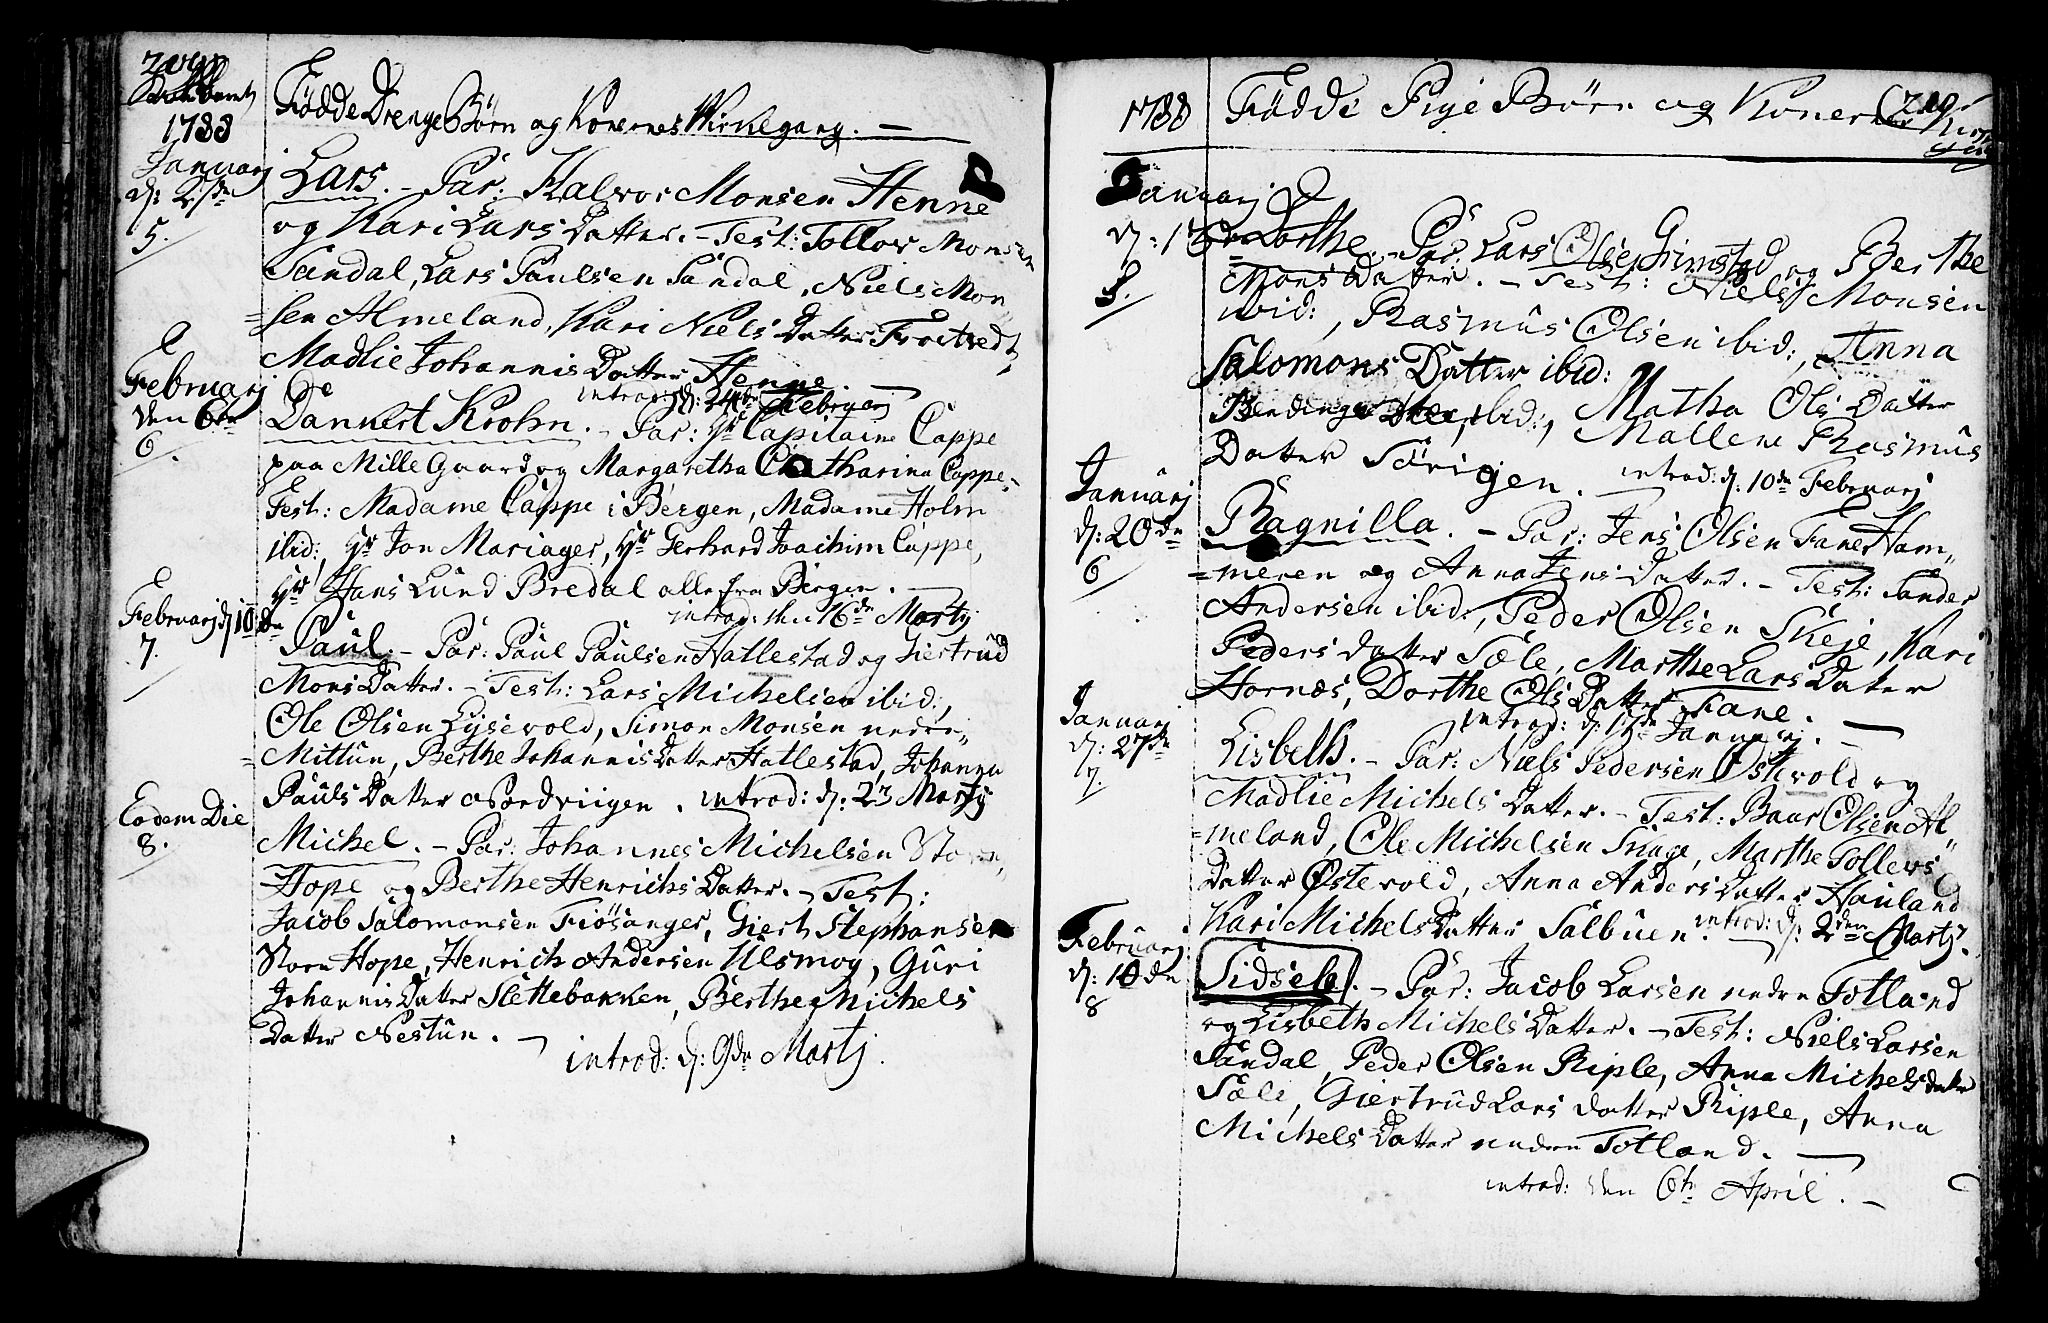 1788
Fødde Drenge Børn og Konernes Kirkegang. —
Januarj
d: 27de
5.
Lars. – Par: Halvor Monsen Henne
og Kari Lars Datter. – Test: Tollov Monsen
Sandal, Lars Paulsen Sandal, Niels Mon
=sen Almeland, Kari Niels Datter
Madlie Johannis Datter Henne
introd: d: 24de Februarj
Februarj
den 6te
6.
Dankert Krohn. – Par: Hr Capitaine Cappe
paa Mille Gaard og Margaretha Catharina Cappe.
Test: Madame Cappe i Bergen, Madame Holm
ibid:, Hr Jon Mariager, Hr Gerhard Joachim Cappe,
Hr Hans Lund Bredal alle fra Bergen. —
introd: den 16de Martj
Februarj d: 10de
7.
Paul. – Par: Paul Paulsen Hatlestad og Giertrud
Mons Datter. – Test: Lars Michelsen ibid:,
Ole Olsen Lysevold, Simon Monsen nedre
=Mittun, Berthe Johannis Datter Hatlestad, Johanna
Pauls Datter Nordviigen. introd: d: 23 Martj
Eodem Die
8.
Michel. – Par: Johannes Michelsen Store
Hope og Berthe Henrichs Datter. – Test:
Jacob Salomonsen Fiøsanger, Giert Stephansen
Store Hope, Henrich Andersen Ulsmog, Guri
Johannis Datter Slettebakken, Berthe Michels
Datter Nestun. —
introd: d: 9de Martj.
1788
Fødde Pige Børn og Konernes Kirke
219
Januarj
d: 13de
5.
Dorthe – Par: Lars Olsen Grimstad og Berthe
Mons Datter. – Test: Niels Monsen
ibid:, Rasmus Olsen ibid:, Anna
Salomons Datter ibid:
ibid:, Matha Ols Datter
Mallene Rasmus
Datter Sørigen. introd: d: 10de Februarj
Januarj
d: 20de
6
Ragnilla. – Par: Jens Olsen Fane Ham
=meren og Anna Jens Datter. – Test: Sander
Andersen ibid:, Peder Olsen Skeje, Kari
Peders Datter Sæle, Marthe Lars Datter
Hornæs, Dorthe Ols Datter Fane. —
introd: d: 17de Januarj. —
Januarj
d: 27de
7.
Lisbeth. – Par: Niels Pedersen Østevold og
Madlie Michels Datter. – Test: Baar Olsen Al
=meland, Ole Michelsen Tvage, Marthe Tollevs
Datter Østevold, Anna Anders Datter Hauland
Kari Michels Datter Sælbuen. introd: d: 2den Martj.
Februarj
d: 10de
8
Sidsele. – Par: Jacob Larsen nedre Totland
og Lisbeth Michels Datter. – Test: Niels Larsen
Sandal, Peder Olsen Riple, Anna Michels datter
Sæle, Giertrud Lars datter Riple, Anna
Michels Datter nedre Totland. —
introd: den 6te April. —